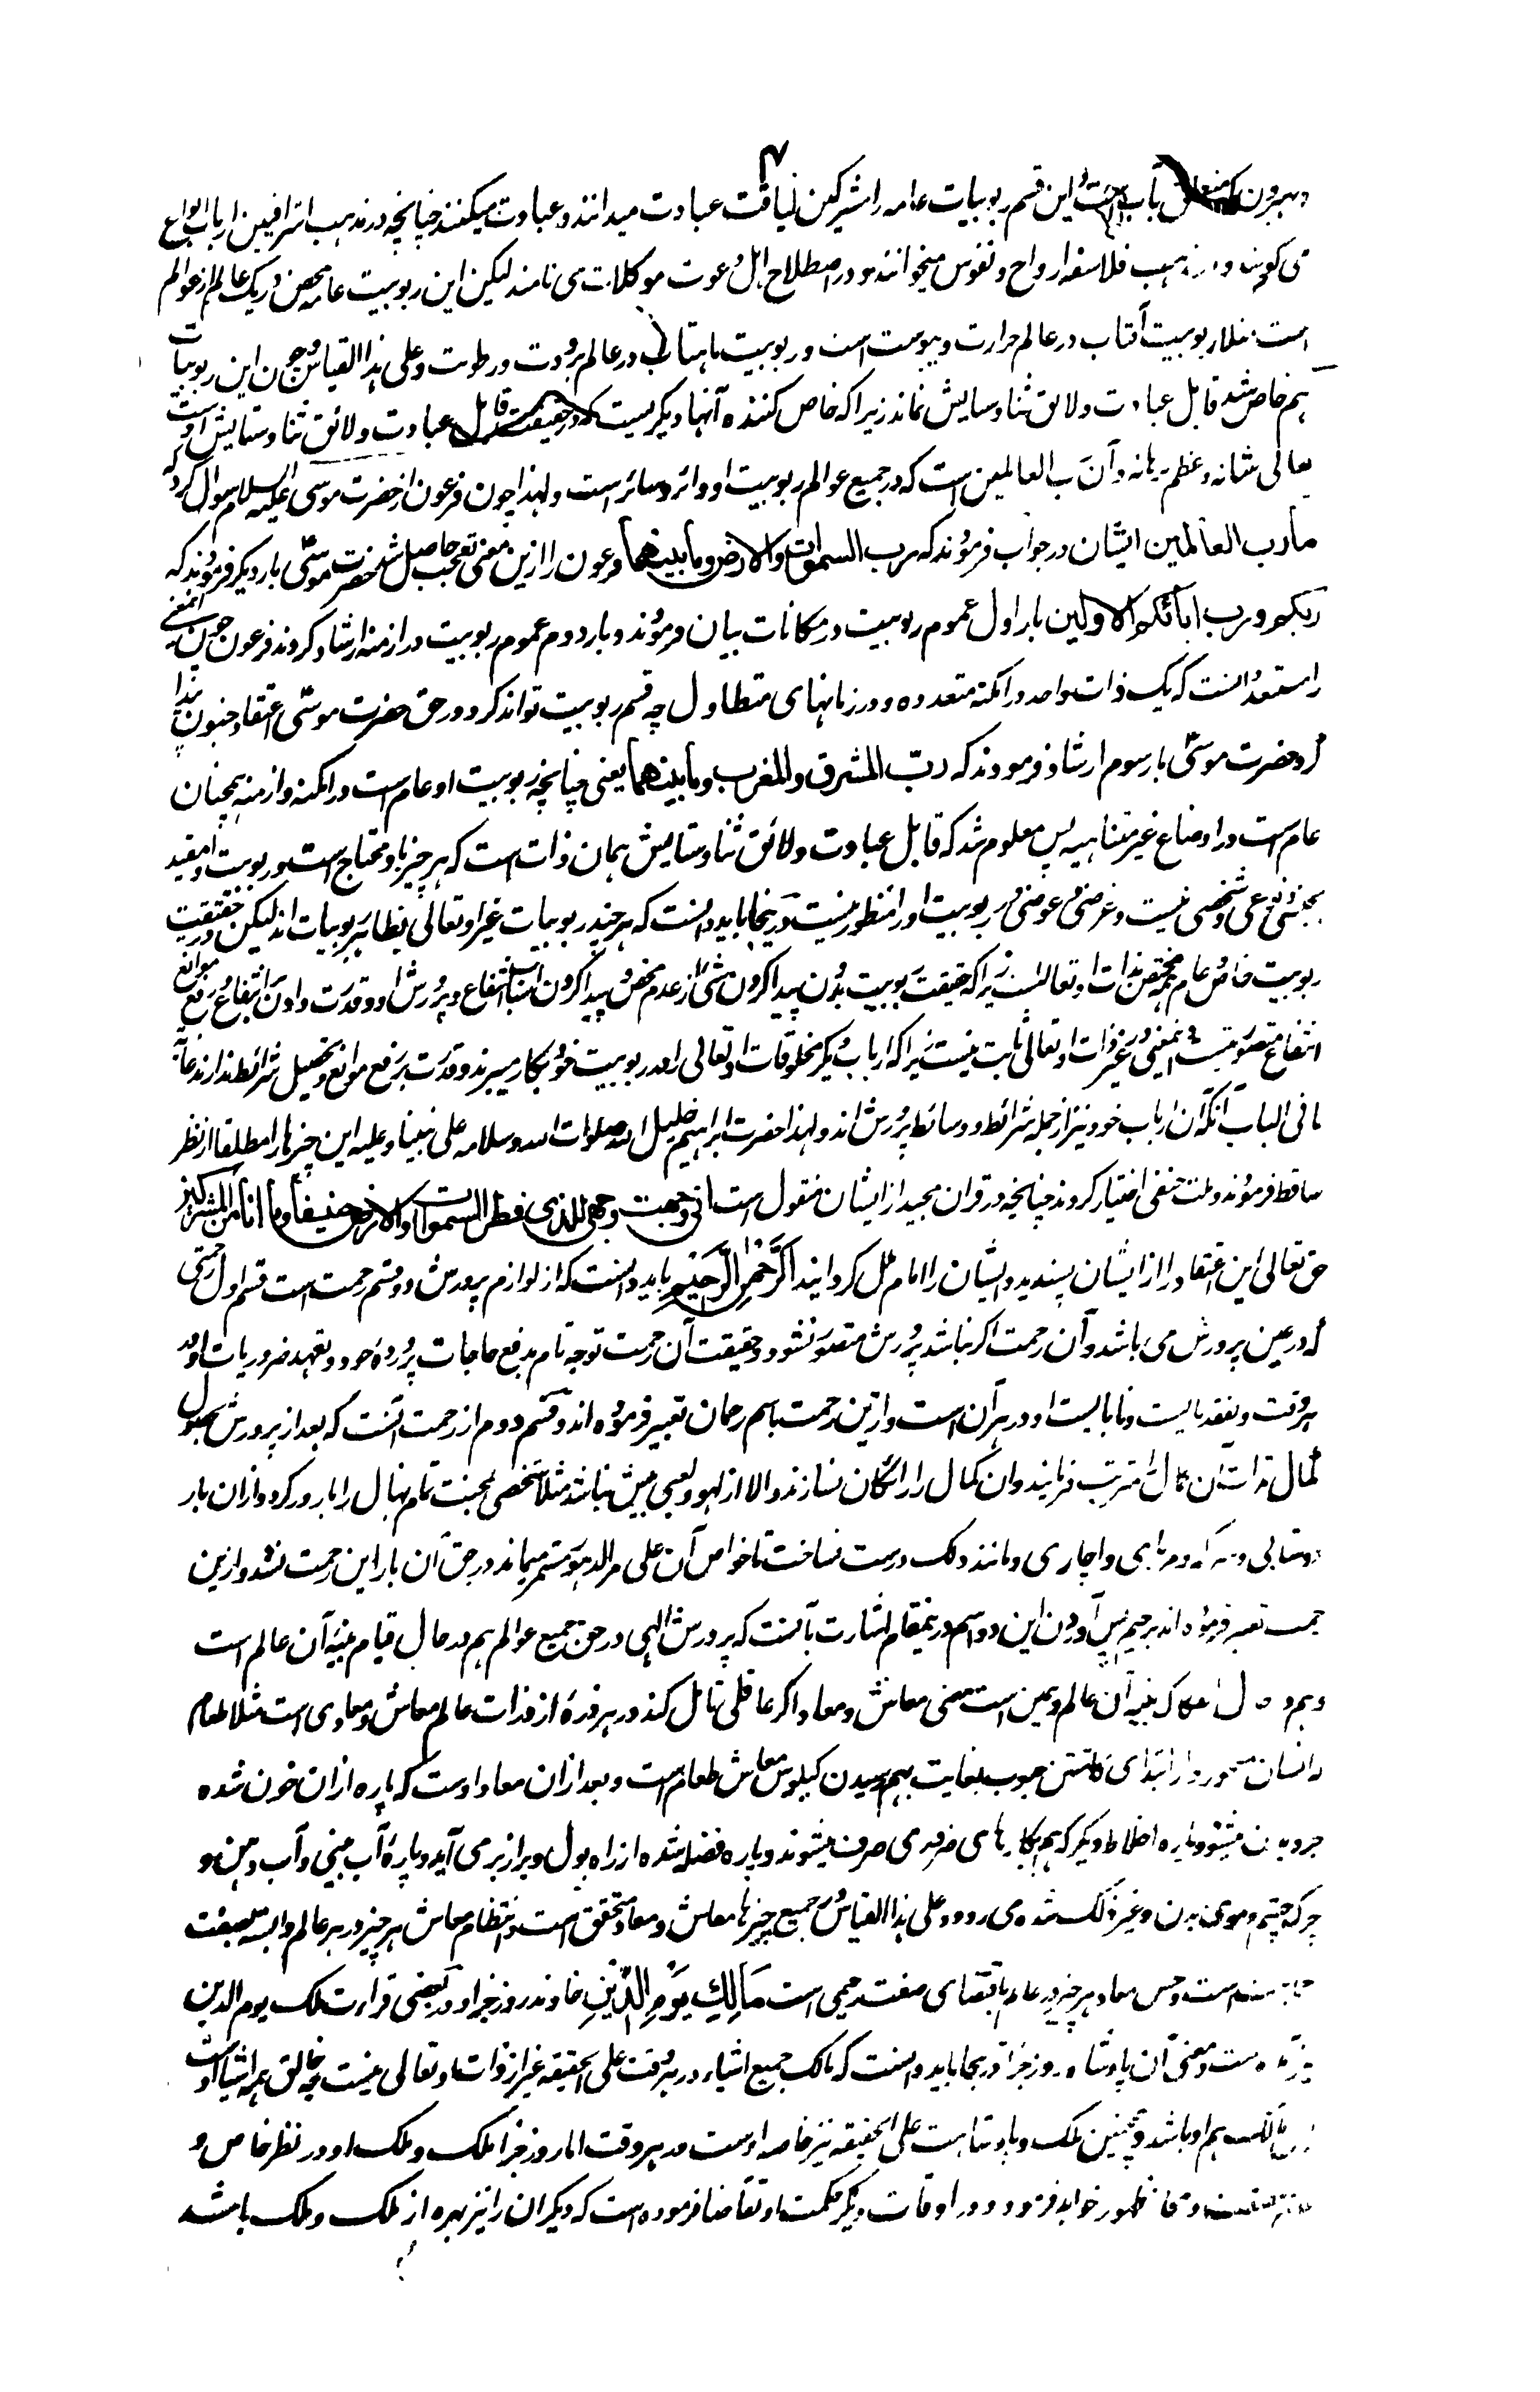 ۷
و بیرون که متعلق بآب است و این قسم ربوبیات عامه را مشرکین لیاقت عبادت میدانند و عبادت میکنند چنانچه در مذهب اشراقیین ارباب انواع
می گویند و در مذهب فلاسفه ارواح و نفوس میخوانند و در اصطلاح اهل دعوت موکلات می نامند لیکن این ربوبیت عامه محض در یک عالم از عوالم
است مثلا ربوبیت آفتاب در عالم حرارت و یبوست است و ربوبیت ماهتاب در عالم برودت و رطوبت و علی هذا القیاس و چون این ربوبیات
هم خاص شد قابل عبادت و لائق ثنا و ستایش نماند زیرا که خاص کننده آنها دیگریست که در حقیقت قابل عبادت و لائق ثنا و ستایش اوست
تعالی شانه و عظم برهانه و آن رب العالمین است که در جمیع عوالم ربوبیت او دائر و سائر است و لهذا چون فرعون از حضرت موسی علیه السلام سوال کرد که
ما رب العالمین ایشان در جواب فرمودند که رب السموات والارض وما بینهما فرعون را ازین معنی تعجب حاصل شد حضرت موسی بار دیگر فرمودند که
ربکم و رب ابائکم الاولین بار اول عموم ربوبیت در مکانات بیان فرمودند و بار دوم عموم ربوبیت در ازمنه ارشاد کردند فرعون چون این معنی
را مستبعد دانست که یک ذات واحد در امکنه متعدده و در زمانهای متطاول چه قسم ربوبیت تواند کرد در حق حضرت موسی اعتقاد جنون پیدا
کرد حضرت موسی بار سوم ارشاد فرمودند که رب المشرق والمغرب وما بینهما یعنی چنانچه ربوبیت او عام است در امکنه و ازمنه همچنان
عام است در اوضاع غیر متناهیه پس معلوم شد که قابل عبادت و لائق ثنا و ستایش همان ذات است که هر چیز باو محتاج است و ربوبیت او مقید
بجنسی و نوعی و شخصی نیست و غرضی و عوضی در ربوبیت او را منظور نیست درینجا باید دانست که هر چند ربوبیات غیر او تعالی بظاهر ربوبیات اند لیکن در حقیقت
ربوبیت خاص و عام همه مختص بذات او تعالی است زیرا که حقیقت ربوبیت بدون پیدا کردن شی از عدم محض و پیدا کردن اسباب انتفاع و پرورش او و قدرت دادن بر انتفاع و رفع موانع
انتفاع متصور نیست و این معنی در غیر ذات او تعالی ثابت نیست زیرا که ارباب دیگر مخلوقات او تعالی را در ربوبیت خود بکار میبرند و قدرت بر رفع موانع و تحصیل شرائط ندارند غایة
ما فی الباب آنکه آن ارباب خود نیز از جمله شرائط و وسائط پرورش اند و لهذا حضرت ابراهیم خلیل الله صلوات الله وسلامه علی نبینا و علیه این چیزها را مطلقا از نظر
ساقط فرمودند و ملت حنفی اختیار کردند چنانچه در قران مجید از ایشان منقول است انی وجهت وجهی للذی فطر السموات والارض حنیفا وما انا من المشرکین
حق تعالی این اعتقاد را از ایشان پسندید و ایشان را امام ملل گردانید الرَّحْمٰنِ الرَّحِیْمِ باید دانست که از لوازم پرورش دو قسم رحمت است قسم اول رحمتی
که در عین پرورش می باشد و آن رحمت اگر نباشد پرورش متصور نشود و حقیقت آن رحمت توجه تام بدفع حاجات پرورده خود و تعهد ضروریات او در
هر وقت و تفقد بایست و نابایست او در هر آن است و ازین رحمت باسم رحمان تعبیر فرموده اند و قسم دوم از رحمت آنست که بعد از پرورش بحصول
کمال ثمرات آن کمال را مترتب فرمایند و آن کمال را رائگان نسازند والا از لهو و لعبی بیش نباشد مثلا شخصی بمحنت تمام نهال را بارور کرد و از آن بار
دوشابی و سرکه و مربای و اچاری و مانند ذلک درست نساخت تا خواص آن علی مر الدهور مستمر بماند در حق آن بار این رحمت نشد و ازین
رحمت تعبیر فرموده اند برحیم پس آوردن این دو اسم درینمقام اشارت بآنست که پرورش الهی در حق جمیع عوالم هم در حال قیام بنیه آن عالم است
و هم در حال انفکاک بنیه آن عالم و همین است معنی معاش و معاد و اگر عاقلی تامل کند در هر ذره از ذرات عالم معاش و معادی است مثلا طعام
که انسان میخورد از ابتدای کاشتن حبوب بغایت بهم رسیدن کیلوس معاش طعام است و بعد ازان معاد اوست که پاره ازان خون شده
جزو بدن میشود و پاره اخلاط دیگر که هم بکارهای ضروری صرف میشوند و پاره فضله شده از راه بول و براز برمی آید و پاره آب بینی و آب دهن و
چرک چشم و موی بدن و غیر ذلک شده می رود و علی هذا القیاس در جمیع چیزها معاش و معاد متحقق است و انتظام معاش هر چیز در هر عالم وابسته بصفت
رحمانیت است و حسن معاد هر چیز در هر عالم باقتضای صفت رحیمی است مَالِكِ یَوْمِ الدِّیْنِ خداوند روز جزا و در بعضی قراءت ملک یوم الدین
نیز آمده است و معنی آن پادشاه روز جزا و درینجا باید دانست که مالک جمیع اشیاء در هر وقت علی الحقیقه غیر از ذات او تعالی نیست چه خالق همه اشیا اوست
پس مالک هم او باشد و همچنین ملک و پادشاهت علی الحقیقه نیز خاصه اوست در هر وقت اما روز جزا ملک و ملک او در نظر خاص و
عام ظهور خواهد فرمود و در اوقات دیگر حکمت او تقاضا فرموده است که دیگران را نیز بهره از ملک و ملک باشد